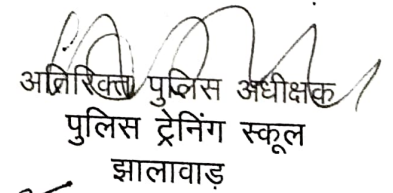 अतिरिक्त पुलिस अधीक्षक
पुलिस ट्रेनिंग स्कूल
झालावाड़